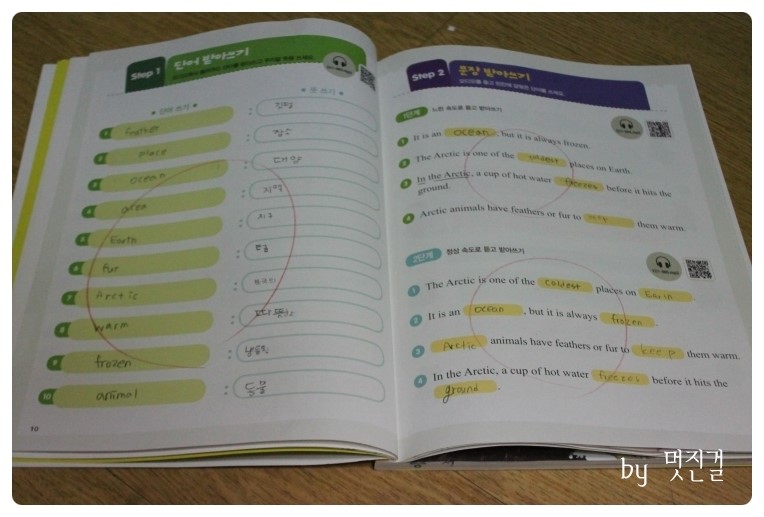 Step 1 단어 받아쓰기
단어 쓰기
뜻 쓰기
1 feather
2 place 장소
3 ocean 대양
4 area 지역
5 Earth 지구
6 fur
7 Arctic
8 warm
9 frozen
10 animal 동물
10
Step 2 문장 받아쓰기
1단계 느린 속도로 듣고 받아쓰기
1 It is an ocean, but it is always frozen.
2 The Arctic is one of the coldest places on Earth.
3 In the Arctic, a cup of hot water freezes before it hits the
ground.
4 Arctic animals have feathers or fur to them warm.
2단계 정상 속도로 듣고 받아쓰기
1 The Arctic is one of the coldest places on Earth.
2 It is an ocean, but it is always frozen.
3 Arctic animals have feathers or fur to keep them warm.
4 In the Arctic, a cup of hot water freezes before it hits the
ground.
by 멋진걸